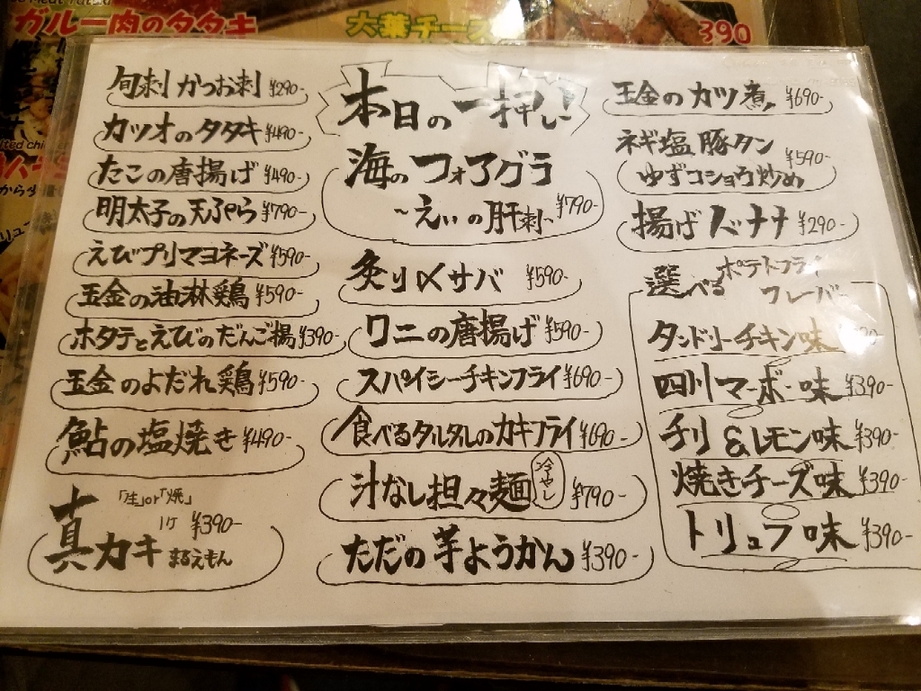 カルー肉のタタキ
大葉チーズ
390
旬刺 かつお刺 ¥290-
カツオのタタキ ¥490-
たこの唐揚げ ¥490-
明太子の天ぷら ¥790-
えびプリマヨネーズ ¥590-
玉金の油淋鶏 ¥590-
ホタテとえびのだんご揚 ¥390-
玉金のよだれ鶏 ¥590-
鮎の塩焼き ¥490-
「生」or「焼」
1ケ ¥390-
真カキ まるえもん
本日の一押し!
海のフォアグラ
~えいの肝刺~ ¥790-
炙り〆サバ ¥590-
ワニの唐揚げ ¥590-
スパイシーチキンフライ ¥690-
食べるタルタルのカキフライ ¥690-
汁なし担々麺 冷やし ¥790-
ただの芋ようかん ¥390-
玉金のカツ煮 ¥690-
ネギ塩豚タン
ゆずコショウ炒め ¥590-
揚げバナナ ¥290-
選べる ポテトフライ
フレーバー
タンドリーチキン味
四川マーボー味 ¥390-
チリ&レモン味 ¥390-
焼きチーズ味 ¥390-
トリュフ味 ¥390-